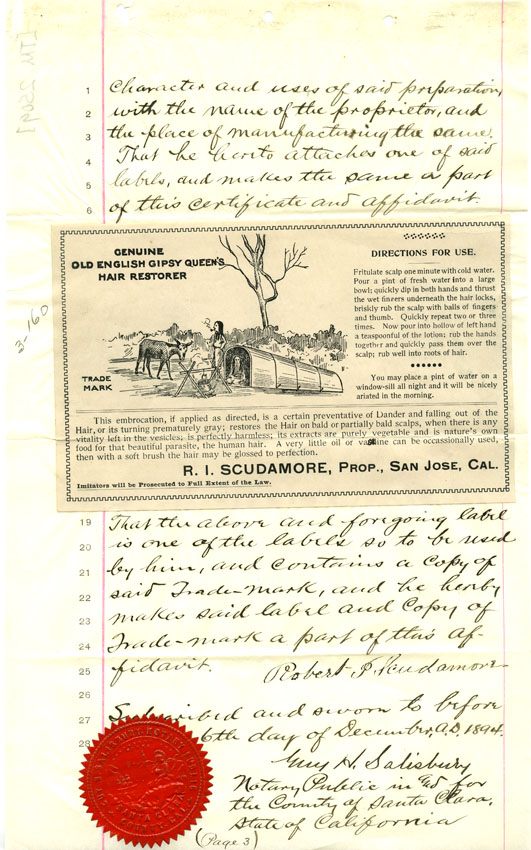 1 Character and uses of said preparation,
2 with the name of the proprietor, and
3 the place of manufacturing the same.
4 That he hereto attaches one of said
5 labels, and makes the same a part
6 of this certificate and affidavit.
3-160
GENUINE
OLD ENGLISH GIPSY QUEEN'S
HAIR RESTORER
TRADE
MARK
DIRECTIONS FOR USE.
Fritulate scalp one minute with cold water.
Pour a pint of fresh water into a large
bowl; quickly dip in both hands and thrust
the wet fingers underneath the hair locks,
briskly rub the scalp with balls of fingers
and thumb. Quickly repeat two or three
times. Now pour into hollow of left hand
a teaspoonful of the lotion; rub the hands
together and quickly pass them over the
scalp; rub well into roots of hair.
You may place a pint of water on a
window-sill all night and it will be nicely
ariated in the morning.
This embrocation, if applied as directed, is a certain preventative of Dander and falling out of the
Hair, or its turning prematurely gray; restores the Hair on bald or partially bald scalps, when there is any
vitality left in the vesicles; is perfectly harmless; its extracts are purely vegetable and is nature's own
food for that beautiful parasite, the human hair. A very little oil or vaseline can be occassionally used,
then with a soft brush the hair may be glossed to perfection.
R. I. SCUDAMORE, PROP., SAN JOSE, CAL.
Imitators will be Prosecuted to Full Extent of the Law.
19 That the above and foregoing label
20 is one of the labels so to be used
21 by him, and contains a copy of
22 said Trade-mark, and he hereby
23 makes said label and Copy of
24 Trade-mark a part of this af-
25 fidavit. Robert I. Scudamore
26
27 Subscribed and sworn to before
28 6th day of December, A.D. 1894.
Guy H. Salisbury
Notary Public in and for
the County of Santa Clara,
State of California
(Page 3)